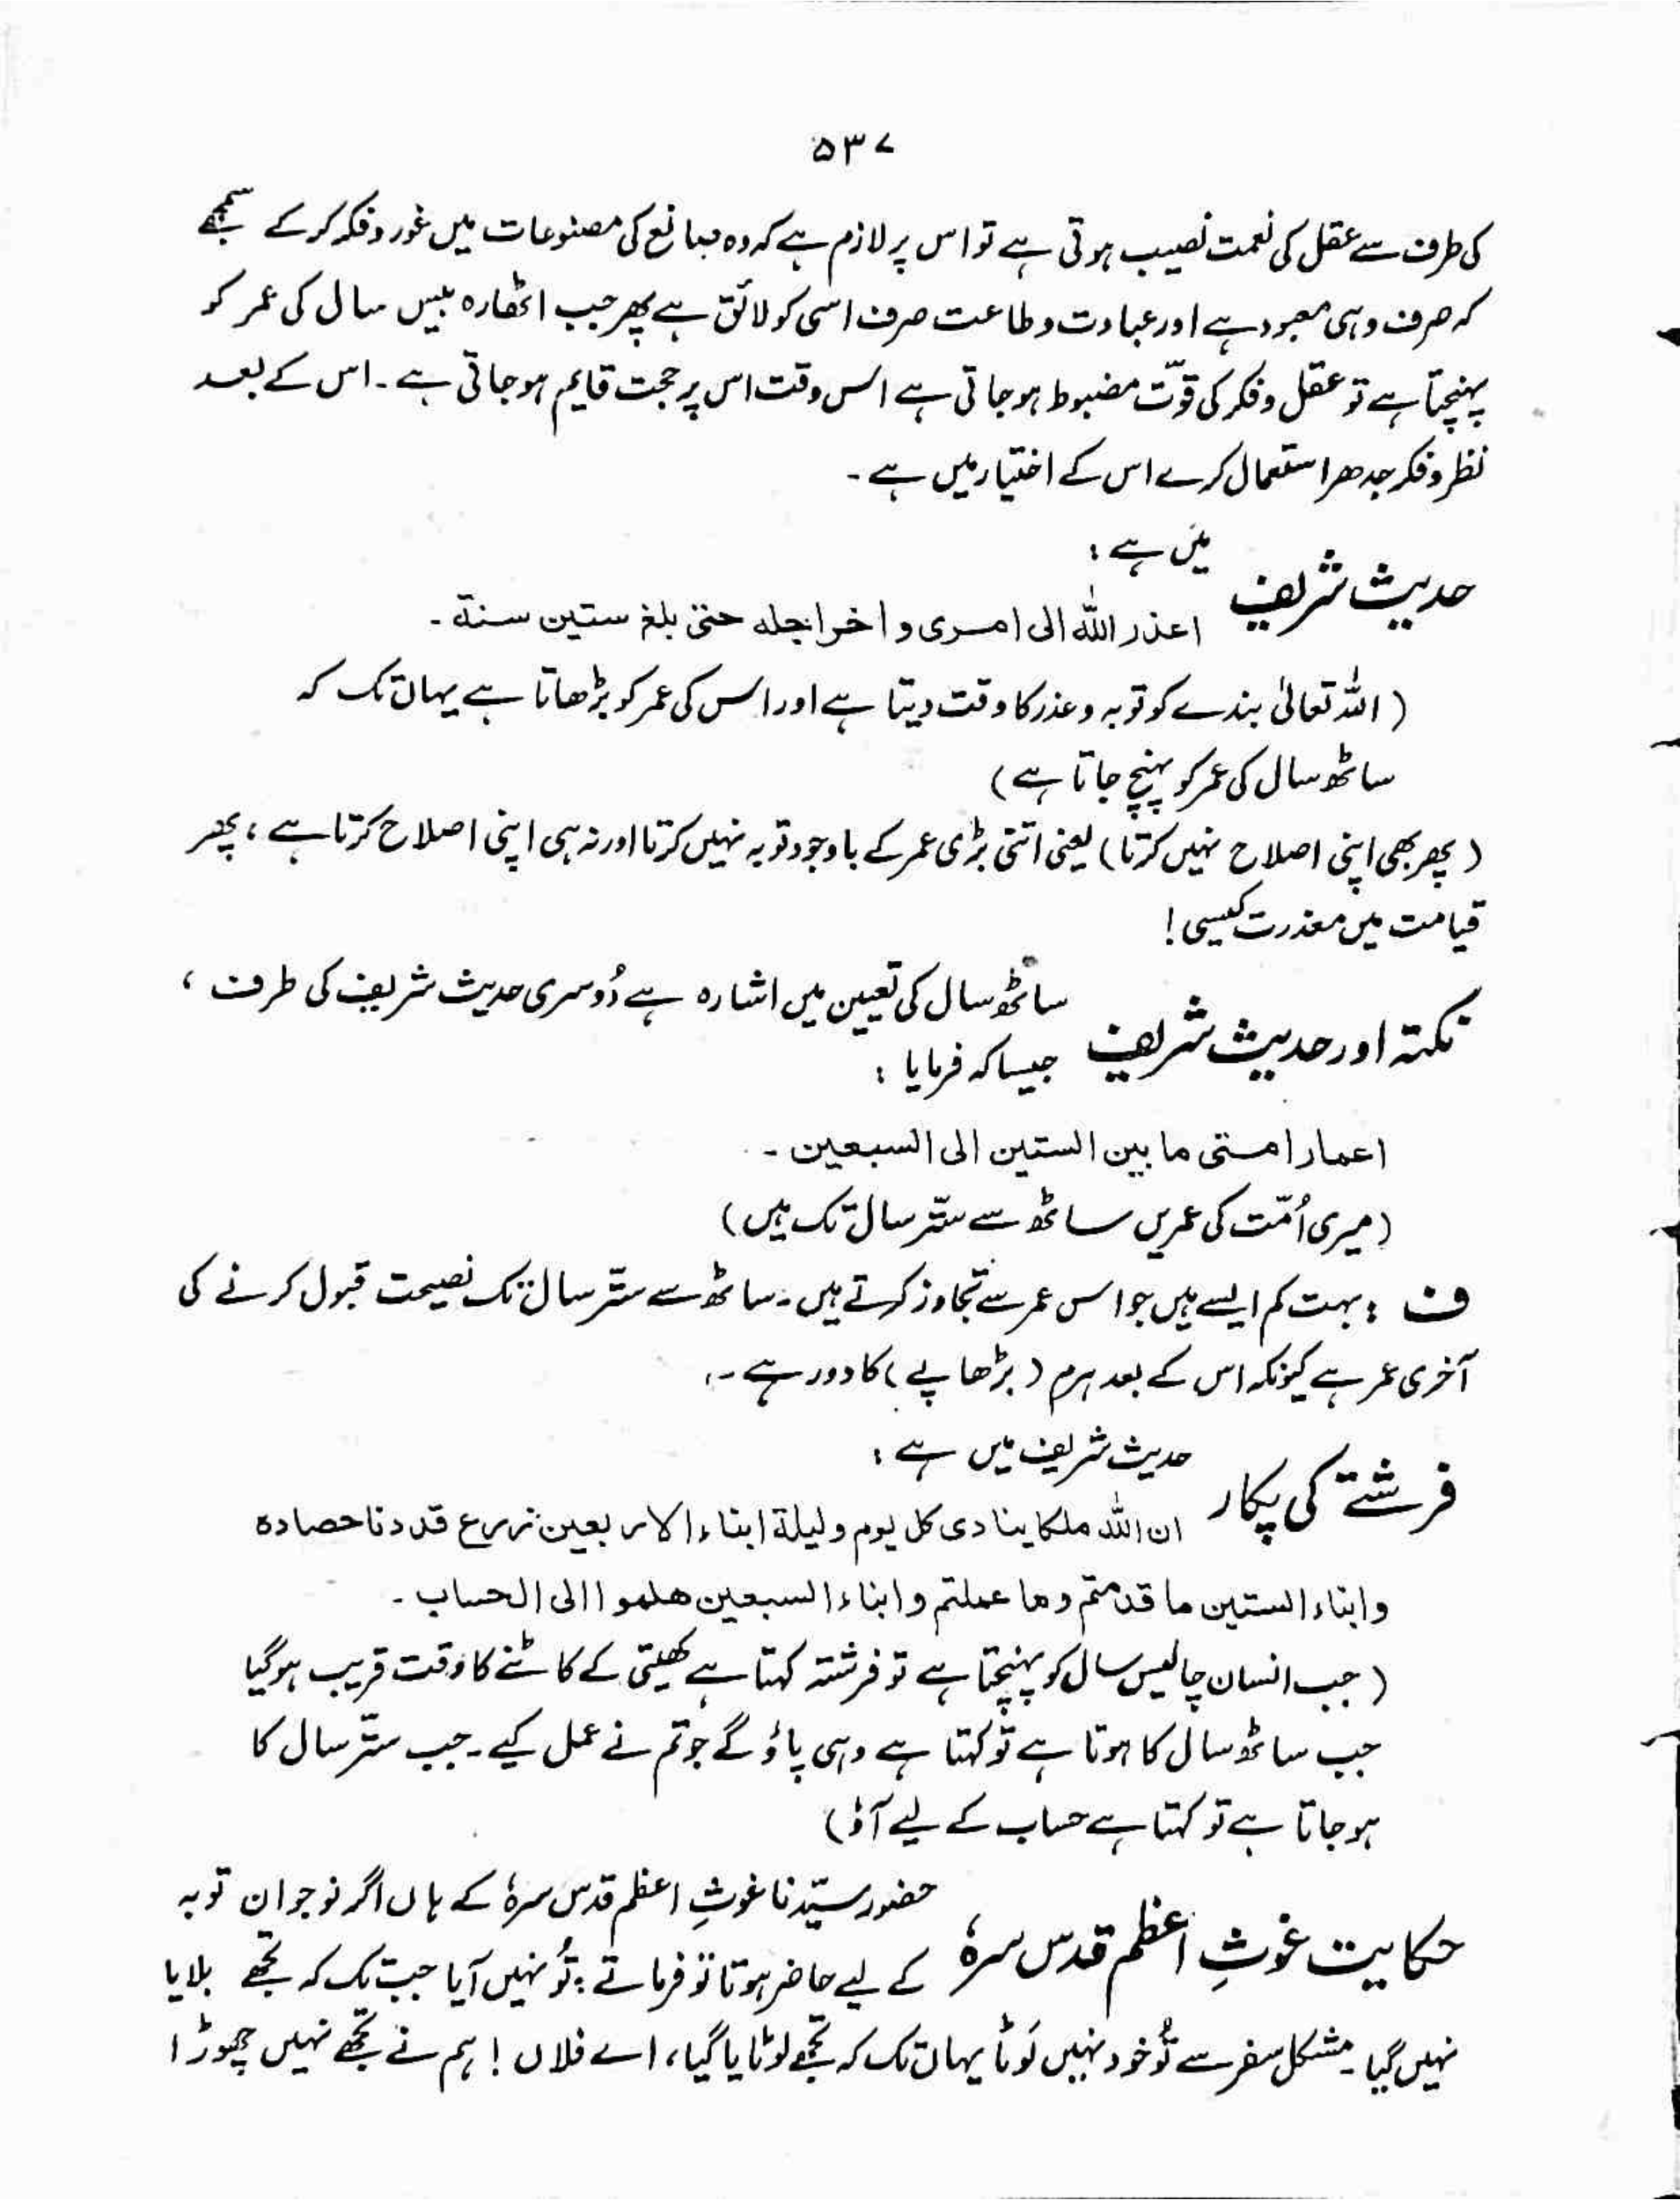 ۵۳۷
کی طرف سے عقل کی نعمت نصیب ہوتی ہے تو اس پر لازم ہے کہ وہ صانع کی مصنوعات میں غور و فکر کرکے سمجھے
کہ صرف وہی معبود ہے اور عبادت و طاعت صرف اسی کو لائق ہے پھر جب اٹھارہ بیس سال کی عمر کو
پہنچتا ہے تو عقل و فکر کی قوّت مضبوط ہوجاتی ہے اس وقت اس پر حجت قایم ہوجاتی ہے۔ اس کے بعد
نظر و فکر جدھر استعمال کرے اس کے اختیار میں ہے۔
حدیث شریف میں ہے:
اعذر اللہ الی امری و اخر اجلہ حتی بلغ ستین سنۃ۔
(اللہ تعالیٰ بندے کو توبہ و عذر کا وقت دیتا ہے اور اس کی عمر کو بڑھاتا ہے یہاں تک کہ
ساٹھ سال کی عمر کو پہنچ جاتا ہے)
(پھر بھی اپنی اصلاح نہیں کرتا) یعنی اتنی بڑی عمر کے باوجود توبہ نہیں کرتا اور نہ ہی اپنی اصلاح کرتا ہے، پھر
قیامت میں معذرت کیسی!
نکتہ اور حدیث شریف ساٹھ سال کی تعیین میں اشارہ ہے دُوسری حدیث شریف کی طرف،
جیسا کہ فرمایا:
اعمار امتی ما بین الستین الی السبعین۔
(میری اُمّت کی عمریں ساٹھ سے ستّر سال تک ہیں)
ف : بہت کم ایسے ہیں جو اس عمر سے تجاوز کرتے ہیں۔ ساٹھ سے ستّر سال تک نصیحت قبول کرنے کی
آخری عمر ہے کیونکہ اس کے بعد ہرم (بڑھاپے) کا دور ہے۔
فرشتے کی پکار حدیث شریف میں ہے:
ان اللہ ملکا ینادی کل یوم و لیلۃ ابناء الاربعین زرع قد دنا حصادہ
و ابناء الستین ما قدمتم و ما عملتم و ابناء السبعین ھلموا الی الحساب۔
(جب انسان چالیس سال کو پہنچتا ہے تو فرشتہ کہتا ہے کھیتی کے کاٹنے کا وقت قریب ہوگیا
جب ساٹھ سال کا ہوتا ہے تو کہتا ہے وہی پاؤ گے جو تم نے عمل کیے۔ جب ستّر سال کا
ہوجاتا ہے تو کہتا ہے حساب کے لیے آؤ)
حکایت غوثِ اعظم قدس سرہٗ حضور سیّدنا غوثِ اعظم قدس سرہٗ کے ہاں اگر نوجوان توبہ
کے لیے حاضر ہوتا تو فرماتے: تُو نہیں آیا جب تک کہ تجھے بلایا
نہیں گیا۔ مشکل سفر سے تُو خود نہیں لَوٹا یہاں تک کہ تجھے لوٹایا گیا، اے فلاں! ہم نے تجھے نہیں چھوڑا